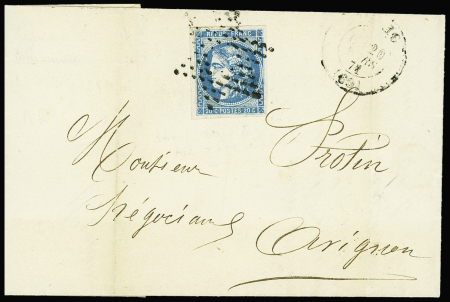 REPUB. FRANC.
20 C. POSTES 20 C.
Monsieur
Négociant
Avignon